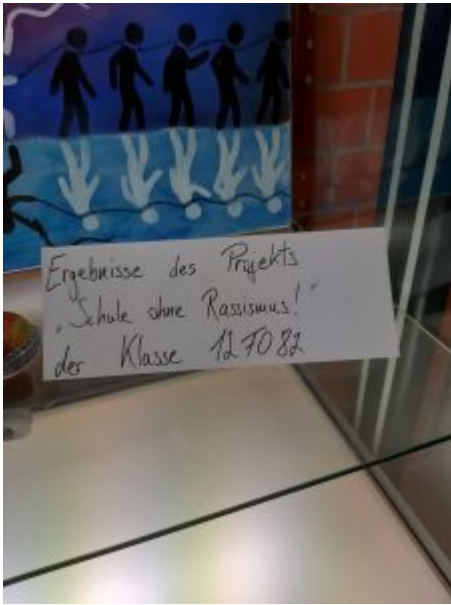 Ergebnisse des Projekts
„Schule ohne Rassismus!“
der Klasse 12FO82